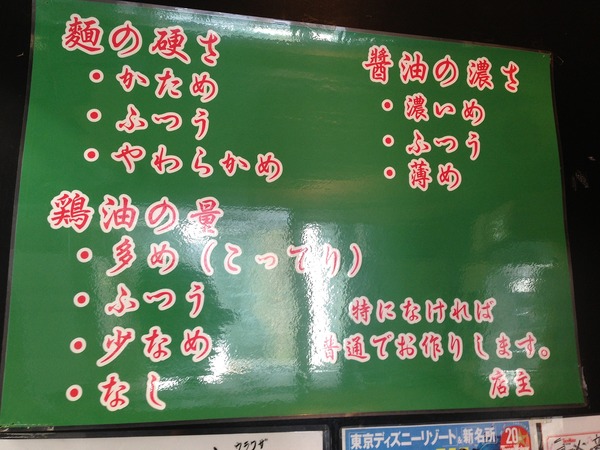 麺の硬さ
・かため
・ふつう
・やわらかめ
醬油の濃さ
・濃いめ
・ふつう
・薄め
鶏油の量
・多め(こってり)
・ふつう
・少なめ
・なし
特になければ
普通でお作りします。
店主
東京ディズニーリゾート&新名所
20